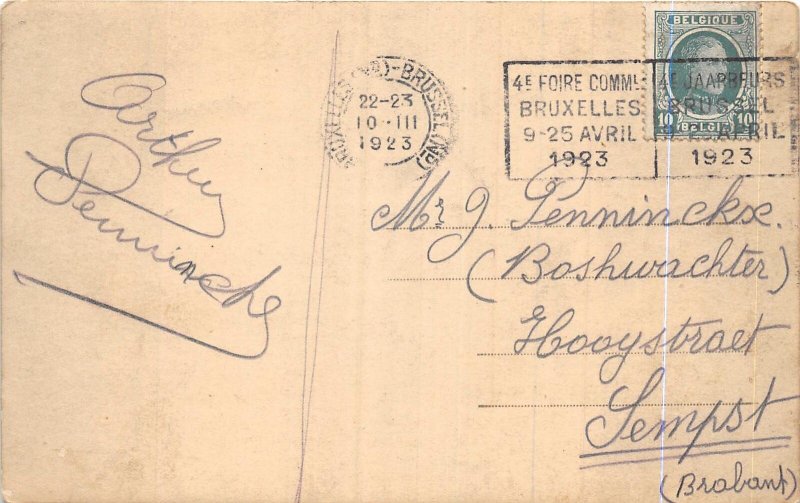 Arthur
Penninckx
BRUXELLES (MID)-BRUSSEL (ND)
22-23
10·III
1923
4E FOIRE COMMLE
BRUXELLES
9-25 AVRIL
1923
4E JAARBEURS
BRUSSEL
APRIL
1923
BELGIQUE
10 10
BELGIE
Mr J. Penninckx.
(Boshwachter)
Hooystraet
Sempst
(Brabant)